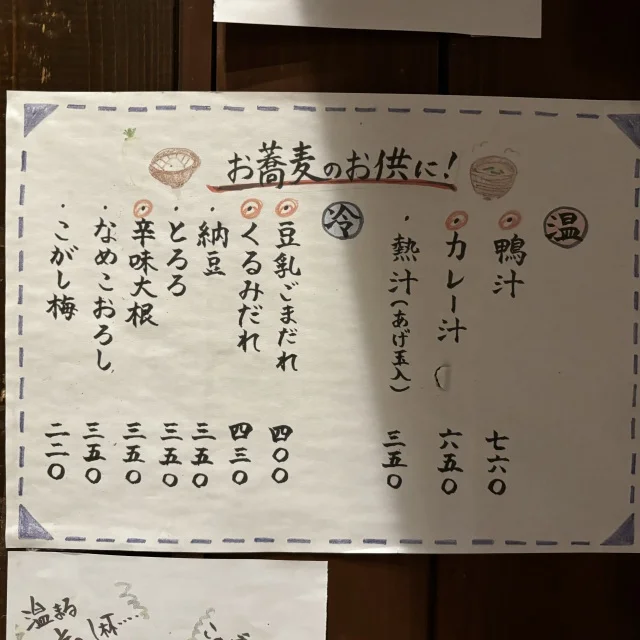 お蕎麦のお供に!
温
・鴨汁 七六〇
・カレー汁 六五〇
・熱汁(あげ玉入) 三五〇
冷
・豆乳ごまだれ 四〇〇
・くるみだれ 四三〇
・納豆 三五〇
・とろろ 三五〇
・辛味大根 三五〇
・なめこおろし 三五〇
・こがし梅 二二〇